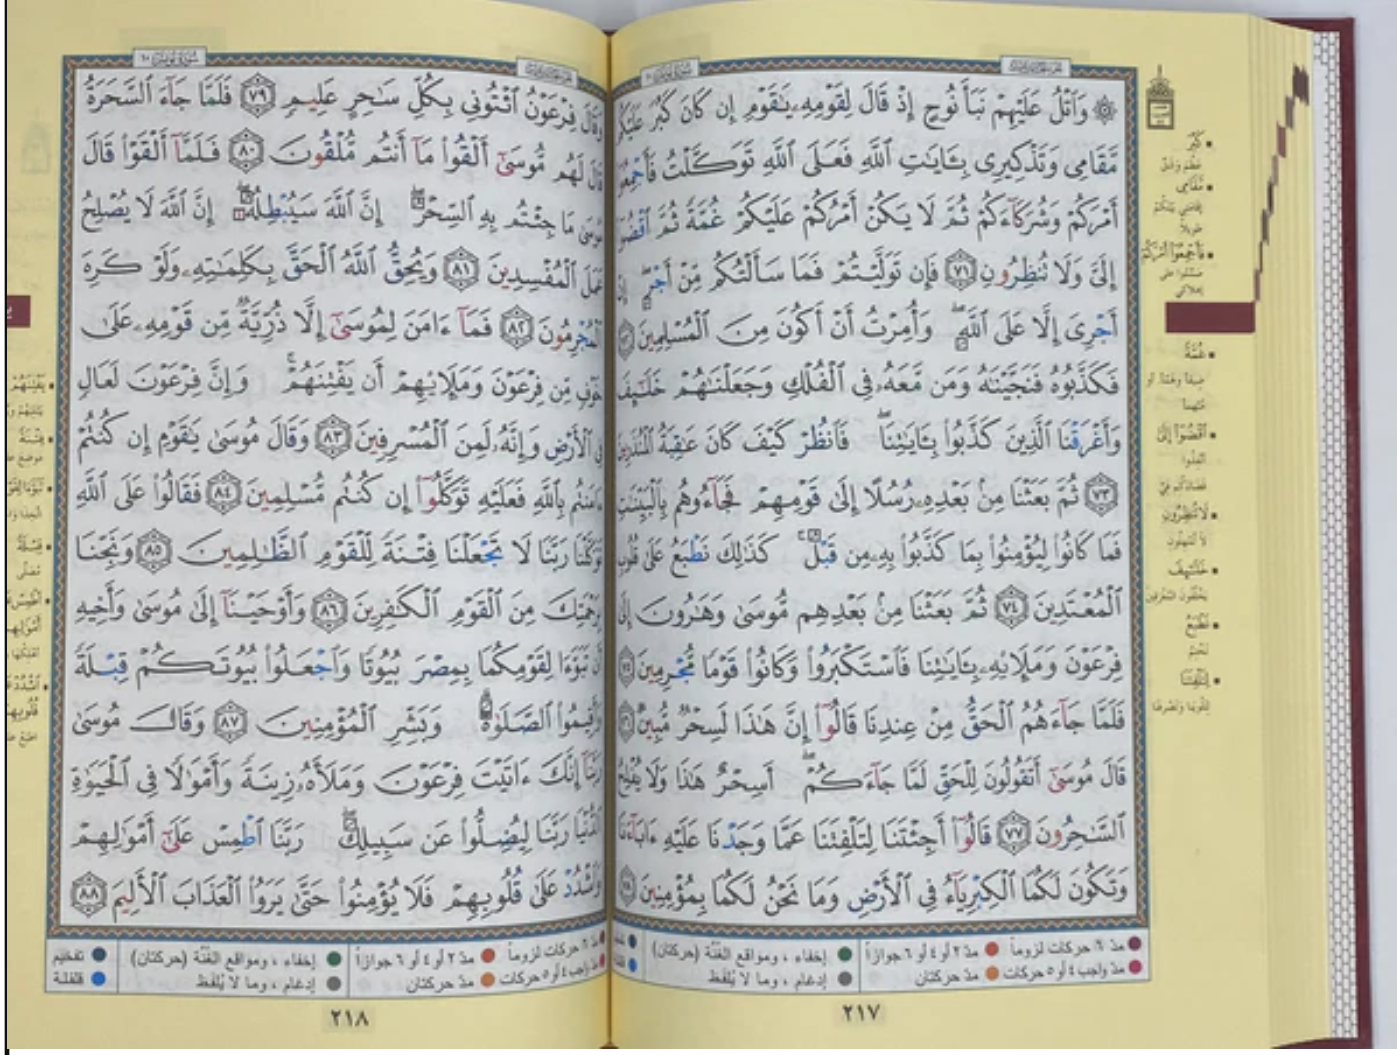 ۞ وَٱتْلُ عَلَيْهِمْ نَبَأَ نُوحٍ إِذْ قَالَ لِقَوْمِهِۦ يَٰقَوْمِ إِن كَانَ كَبُرَ عَلَيْكُم
مَّقَامِى وَتَذْكِيرِى بِـَٔايَٰتِ ٱللَّهِ فَعَلَى ٱللَّهِ تَوَكَّلْتُ فَأَجْمِعُوٓا۟
أَمْرَكُمْ وَشُرَكَآءَكُمْ ثُمَّ لَا يَكُنْ أَمْرُكُمْ عَلَيْكُمْ غُمَّةً ثُمَّ ٱقْضُوٓا۟
إِلَىَّ وَلَا تُنظِرُونِ ٧١ فَإِن تَوَلَّيْتُمْ فَمَا سَأَلْتُكُم مِّنْ أَجْرٍ ۖ إِنْ
أَجْرِىَ إِلَّا عَلَى ٱللَّهِ ۖ وَأُمِرْتُ أَنْ أَكُونَ مِنَ ٱلْمُسْلِمِينَ ٧٢
فَكَذَّبُوهُ فَنَجَّيْنَٰهُ وَمَن مَّعَهُۥ فِى ٱلْفُلْكِ وَجَعَلْنَٰهُمْ خَلَٰٓئِفَ
وَأَغْرَقْنَا ٱلَّذِينَ كَذَّبُوا۟ بِـَٔايَٰتِنَا ۖ فَٱنظُرْ كَيْفَ كَانَ عَٰقِبَةُ ٱلْمُنذَرِينَ
٧٣ ثُمَّ بَعَثْنَا مِنۢ بَعْدِهِۦ رُسُلًا إِلَىٰ قَوْمِهِمْ فَجَآءُوهُم بِٱلْبَيِّنَٰتِ
فَمَا كَانُوا۟ لِيُؤْمِنُوا۟ بِمَا كَذَّبُوا۟ بِهِۦ مِن قَبْلُ ۚ كَذَٰلِكَ نَطْبَعُ عَلَىٰ قُلُوبِ
ٱلْمُعْتَدِينَ ٧٤ ثُمَّ بَعَثْنَا مِنۢ بَعْدِهِم مُّوسَىٰ وَهَٰرُونَ إِلَىٰ
فِرْعَوْنَ وَمَلَإِي۟هِۦ بِـَٔايَٰتِنَا فَٱسْتَكْبَرُوا۟ وَكَانُوا۟ قَوْمًا مُّجْرِمِينَ ٧٥
فَلَمَّا جَآءَهُمُ ٱلْحَقُّ مِنْ عِندِنَا قَالُوٓا۟ إِنَّ هَٰذَا لَسِحْرٌ مُّبِينٌ ٧٦
قَالَ مُوسَىٰٓ أَتَقُولُونَ لِلْحَقِّ لَمَّا جَآءَكُمْ ۖ أَسِحْرٌ هَٰذَا وَلَا يُفْلِحُ
ٱلسَّٰحِرُونَ ٧٧ قَالُوٓا۟ أَجِئْتَنَا لِتَلْفِتَنَا عَمَّا وَجَدْنَا عَلَيْهِ ءَابَآءَنَا
وَتَكُونَ لَكُمَا ٱلْكِبْرِيَآءُ فِى ٱلْأَرْضِ وَمَا نَحْنُ لَكُمَا بِمُؤْمِنِينَ ٧٨
كَبُرَ
عَظُمَ وَشَقَّ
مَّقَامِى
إِقَامَتِي بَيْنَكُمْ
طَوِيلاً
فَأَجْمِعُوٓا۟ أَمْرَكُمْ
غُمَّةً
ٱقْضُوٓا۟ إِلَىَّ
لَا تُنظِرُونِ
لَا تُمْهِلُونِ
خَلَٰٓئِفَ
نَطْبَعُ
نَخْتِمُ
لِتَلْفِتَنَا
مدّ ٦ حركات لزوماً ● مدّ ٢ أو ٤ أو ٦ جوازاً ● إخفاء ، ومواقع الغُنَّة (حركتان)
مدّ واجب ٤ أو ٥ حركات ● مدّ حركتان ● إدغام ، وما لا يُلفظ
٢١٧
سُورَةُ يُونُسَ ١٠
وَقَالَ فِرْعَوْنُ ٱئْتُونِى بِكُلِّ سَٰحِرٍ عَلِيمٍ ٧٩ فَلَمَّا جَآءَ ٱلسَّحَرَةُ
قَالَ لَهُم مُّوسَىٰٓ أَلْقُوا۟ مَآ أَنتُم مُّلْقُونَ ٨٠ فَلَمَّآ أَلْقَوْا۟ قَالَ
مُوسَىٰ مَا جِئْتُم بِهِ ٱلسِّحْرُ ۖ إِنَّ ٱللَّهَ سَيُبْطِلُهُۥٓ ۖ إِنَّ ٱللَّهَ لَا يُصْلِحُ
عَمَلَ ٱلْمُفْسِدِينَ ٨١ وَيُحِقُّ ٱللَّهُ ٱلْحَقَّ بِكَلِمَٰتِهِۦ وَلَوْ كَرِهَ
ٱلْمُجْرِمُونَ ٨٢ فَمَآ ءَامَنَ لِمُوسَىٰٓ إِلَّا ذُرِّيَّةٌ مِّن قَوْمِهِۦ عَلَىٰ
خَوْفٍ مِّن فِرْعَوْنَ وَمَلَإِي۟هِمْ أَن يَفْتِنَهُمْ ۚ وَإِنَّ فِرْعَوْنَ لَعَالٍ
فِى ٱلْأَرْضِ وَإِنَّهُۥ لَمِنَ ٱلْمُسْرِفِينَ ٨٣ وَقَالَ مُوسَىٰ يَٰقَوْمِ إِن كُنتُمْ
ءَامَنتُم بِٱللَّهِ فَعَلَيْهِ تَوَكَّلُوٓا۟ إِن كُنتُم مُّسْلِمِينَ ٨٤ فَقَالُوا۟ عَلَى ٱللَّهِ
تَوَكَّلْنَا رَبَّنَا لَا تَجْعَلْنَا فِتْنَةً لِّلْقَوْمِ ٱلظَّٰلِمِينَ ٨٥ وَنَجِّنَا
بِرَحْمَتِكَ مِنَ ٱلْقَوْمِ ٱلْكَٰفِرِينَ ٨٦ وَأَوْحَيْنَآ إِلَىٰ مُوسَىٰ وَأَخِيهِ
أَن تَبَوَّءَا لِقَوْمِكُمَا بِمِصْرَ بُيُوتًا وَٱجْعَلُوا۟ بُيُوتَكُمْ قِبْلَةً
وَأَقِيمُوا۟ ٱلصَّلَوٰةَ ۗ وَبَشِّرِ ٱلْمُؤْمِنِينَ ٨٧ وَقَالَ مُوسَىٰ
رَبَّنَآ إِنَّكَ ءَاتَيْتَ فِرْعَوْنَ وَمَلَأَهُۥ زِينَةً وَأَمْوَٰلًا فِى ٱلْحَيَوٰةِ
ٱلدُّنْيَا رَبَّنَا لِيُضِلُّوا۟ عَن سَبِيلِكَ ۖ رَبَّنَا ٱطْمِسْ عَلَىٰٓ أَمْوَٰلِهِمْ
وَٱشْدُدْ عَلَىٰ قُلُوبِهِمْ فَلَا يُؤْمِنُوا۟ حَتَّىٰ يَرَوُا۟ ٱلْعَذَابَ ٱلْأَلِيمَ ٨٨
يَفْتِنَهُمْ
مدّ ٦ حركات لزوماً ● مدّ ٢ أو ٤ أو ٦ جوازاً ● إخفاء ، ومواقع الغُنَّة (حركتان) ● تفخيم
مدّ واجب ٤ أو ٥ حركات ● مدّ حركتان ● إدغام ، وما لا يُلفظ ● قلقلة
٢١٨